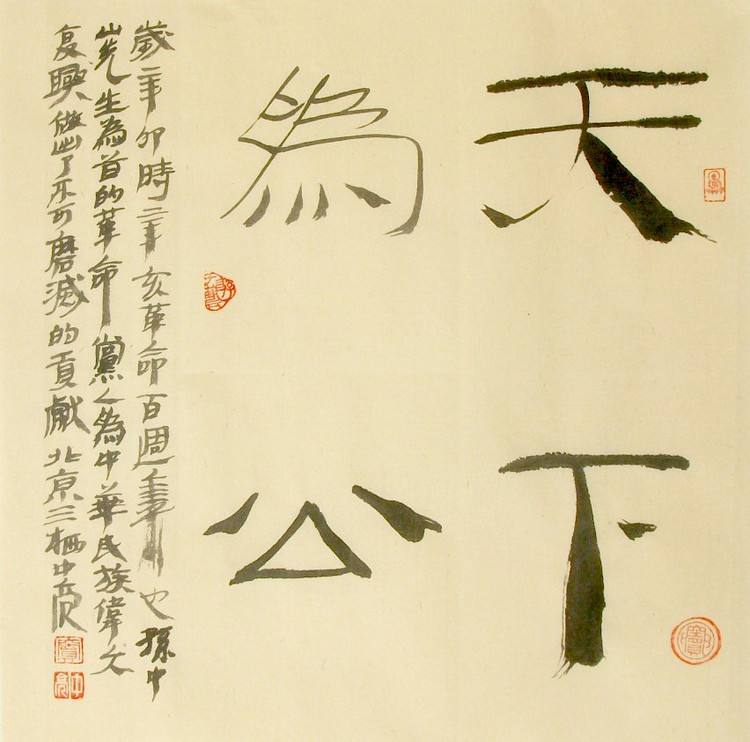 天下
為公
歲辛卯時辛亥革命百週年也孫中
山先生為首的革命黨人為中華民族偉大
复興做出了不可磨滅的貢獻北京三栖中